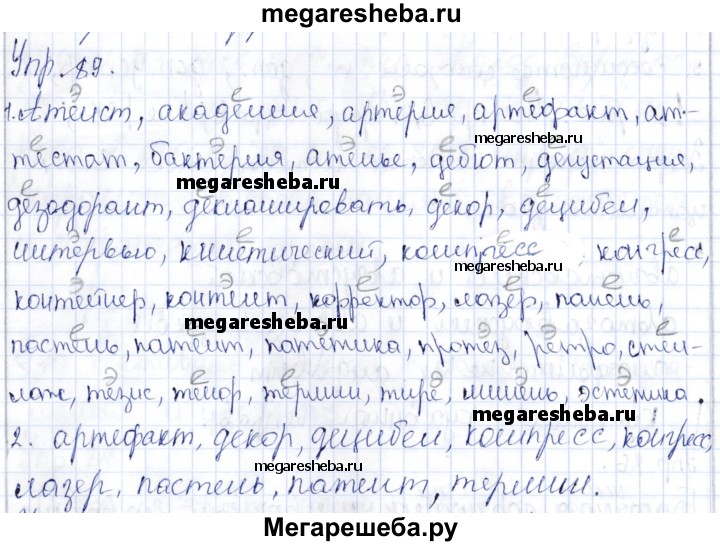 megaresheba.ru
Упр. 89.
1. Атеист, академия, артерия, артефакт, ат-
megaresheba.ru
тестат, бактерия, ателье, дебют, дегустация,
megaresheba.ru
дезодорант, декламировать, декор, децибел,
интервью, кинетический, компресс, конгресс,
megaresheba.ru
контейнер, контент, корректор, лазер, панель,
megaresheba.ru
пастель, патент, патетика, протез, ретро, стел-
лаж, тезис, тенор, термин, тире, шинель, эстетика.
megaresheba.ru
2. артефакт, декор, децибел, компресс, конгресс,
megaresheba.ru
лазер, пастель, патент, термин.
Мегарешеба.ру